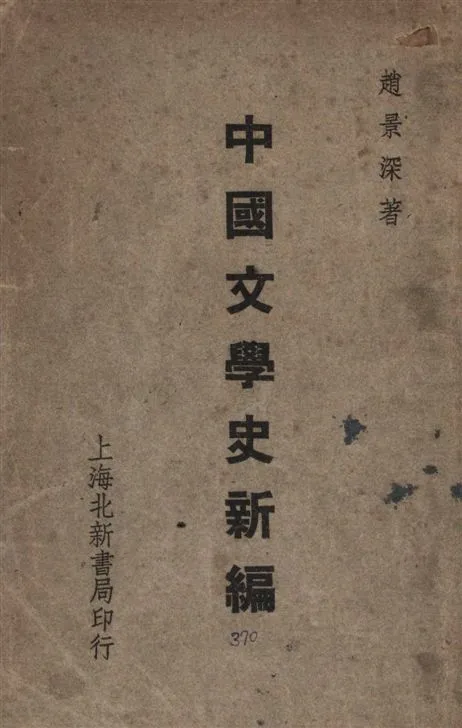 趙景深著
中國文學史新編
上海北新書局印行
370